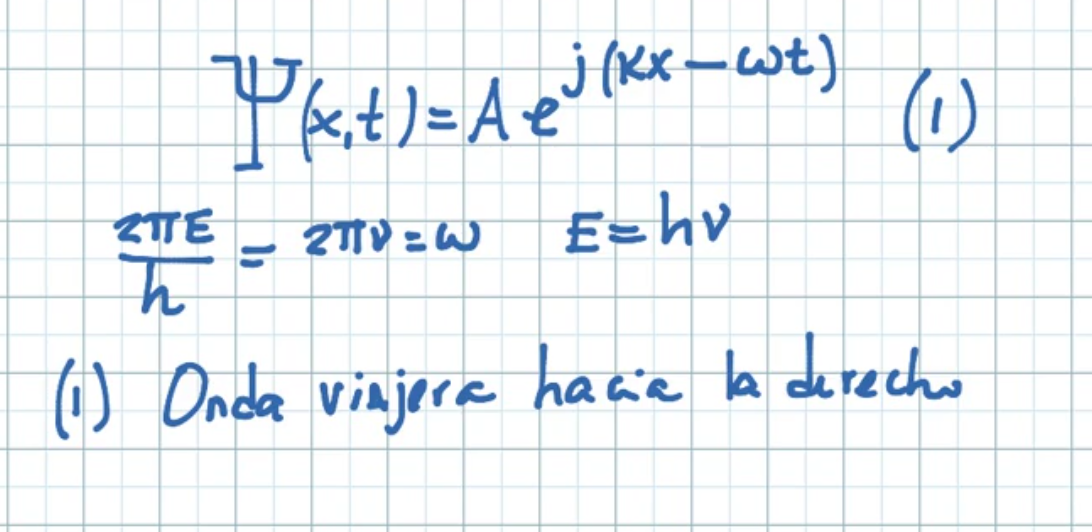 Ψ(x,t) = A e^{j(Kx − ωt)} (1)
2πE/h = 2πν = ω E = hν
(1) Onda viajera hacia la derecha